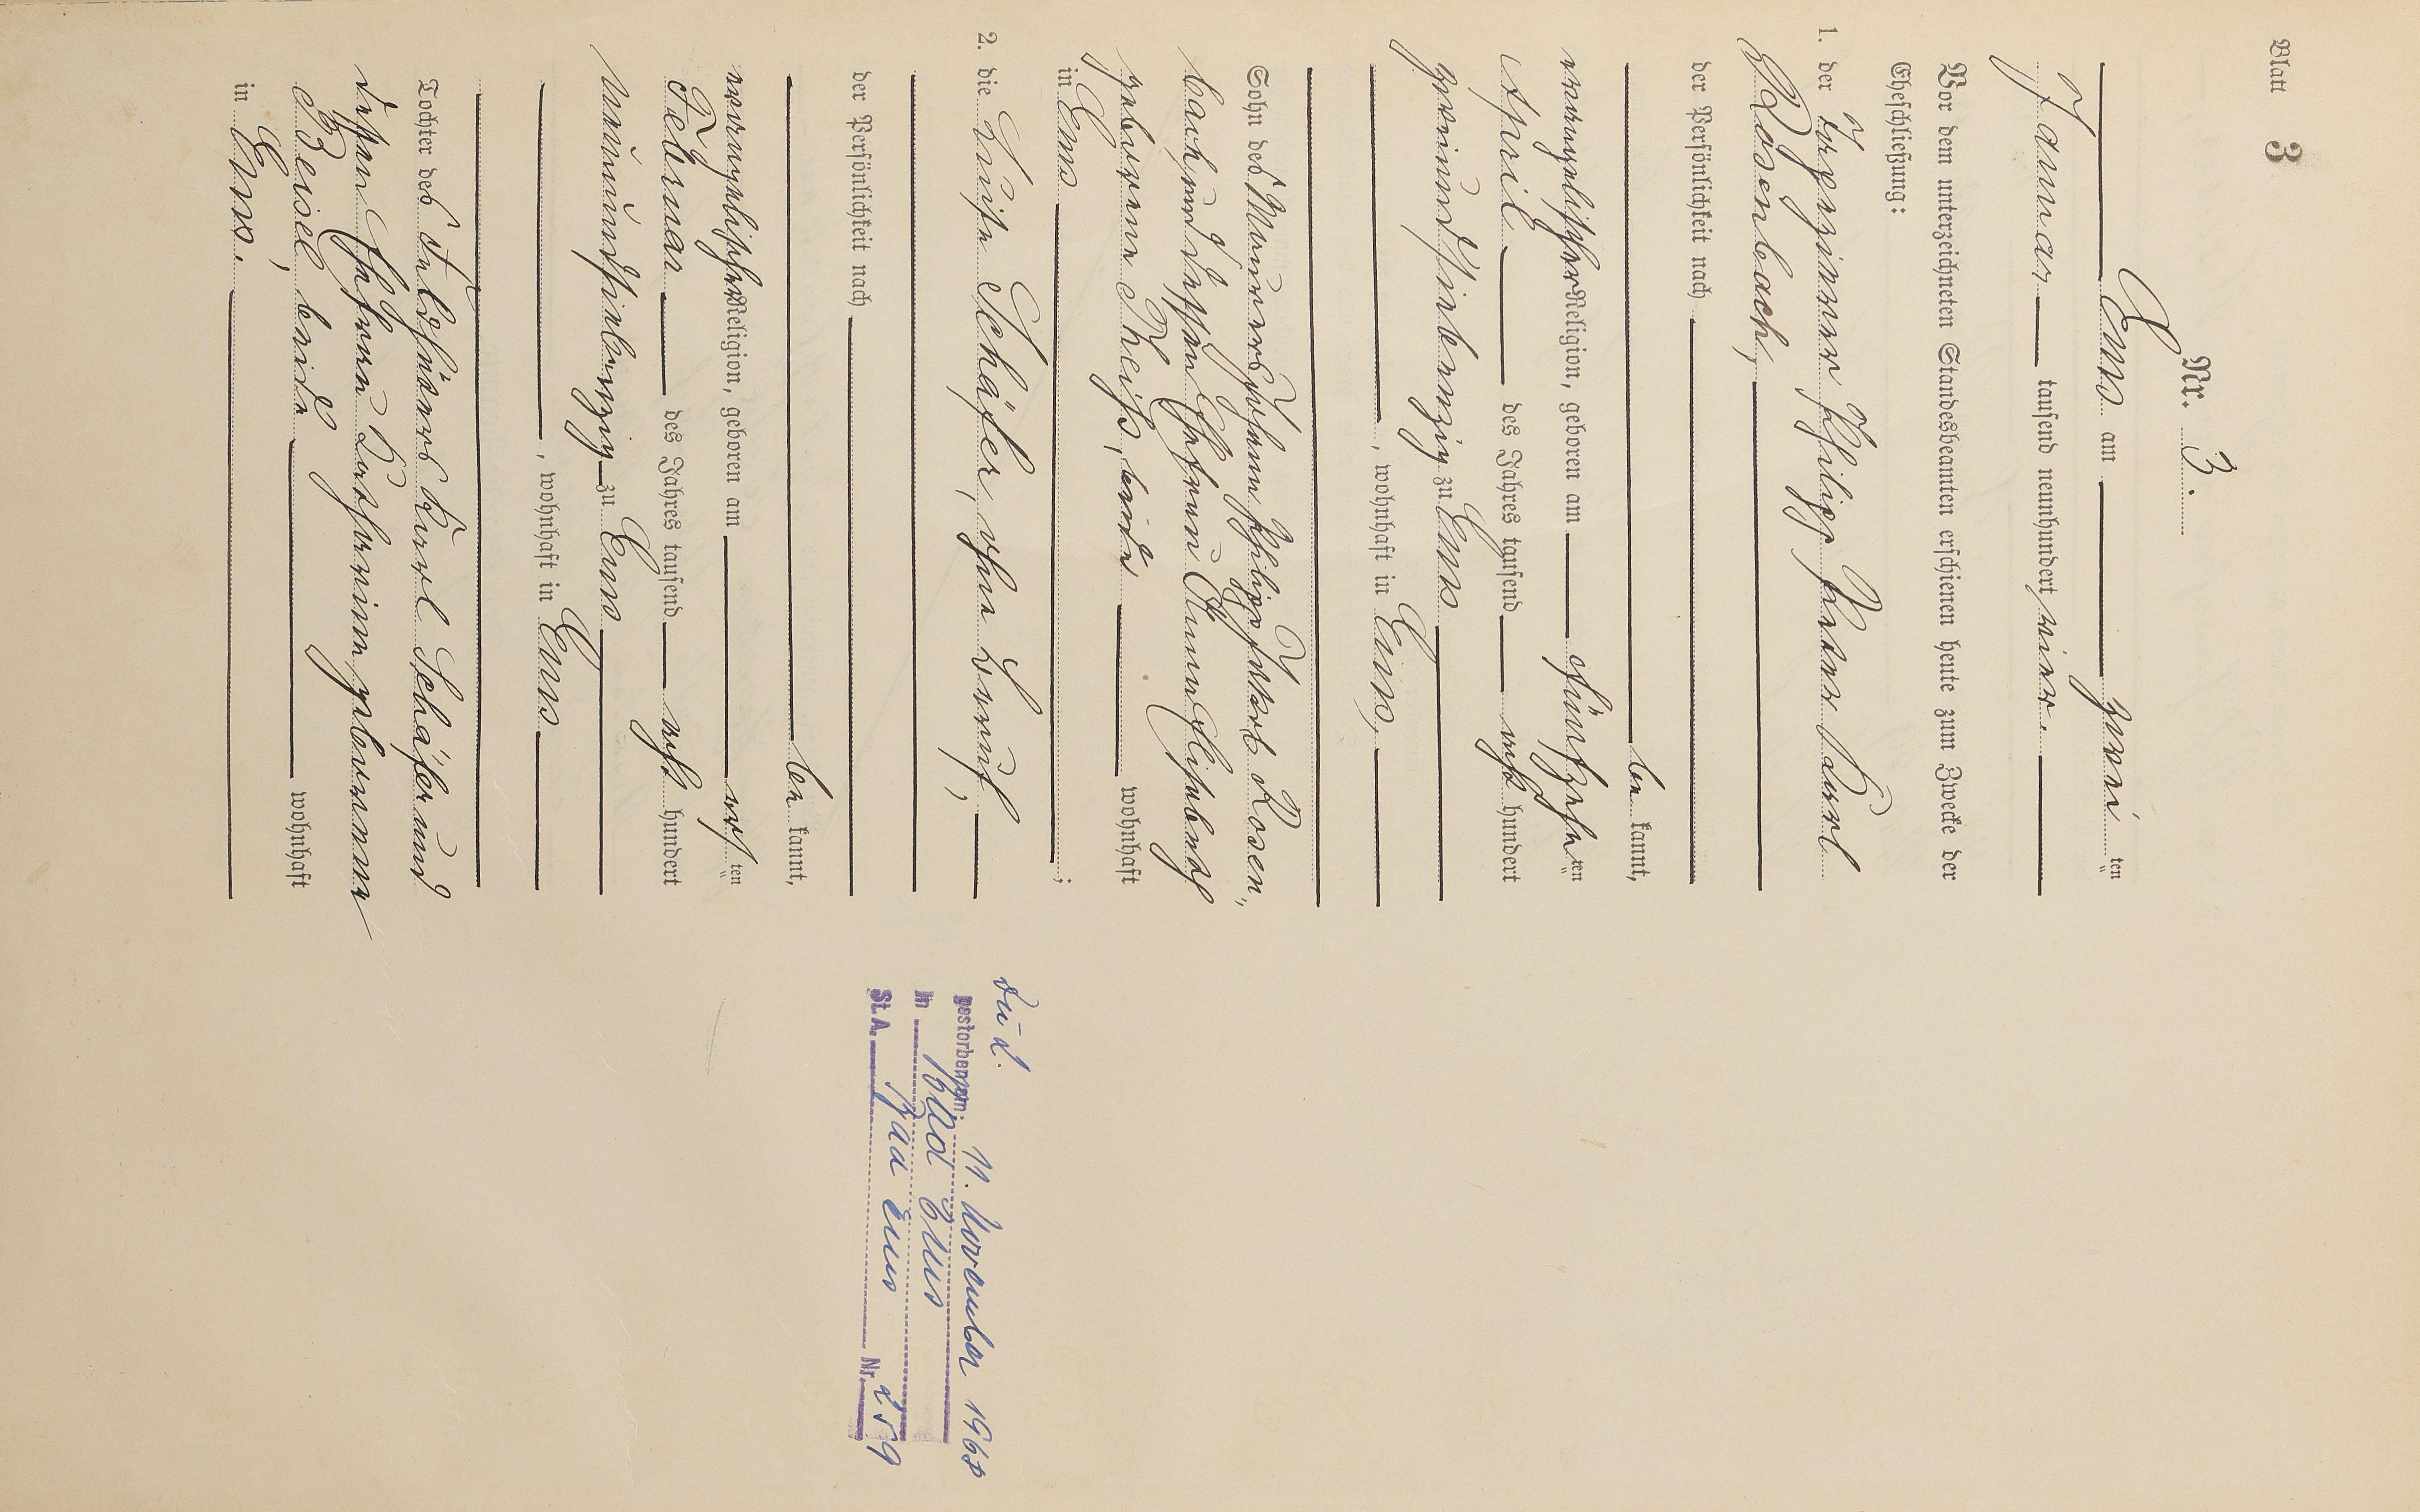 Blatt 3
Nr. 3.
Ems am zwei ten
Januar tausend neunhundert vier.
Vor dem unterzeichneten Standesbeamten erschienen heute zum Zwecke der
Eheschließung:
1. der Tapezierer Philipp Peter Karl
Rosenbach,
der Persönlichkeit nach
be kannt,
evangelischer Religion, geboren am fünfzehn ten
April des Jahres tausend acht hundert
zweiundsiebenzig zu Ems
, wohnhaft in Ems,
Sohn des Maurers Johann Philipp Jakob Rosen„
bach und dessen Ehefrau Anna Elisabeth
geborene Theiß, beide wohnhaft
in Ems ;
2. die Luise Schäfer, ohne Beruf,
der Persönlichkeit nach
be kannt,
evangelischer Religion, geboren am ach ten
Februar des Jahres tausend acht hundert
neunundsiebenzig zu Ems
, wohnhaft in Ems
Tochter des Feldhüters Karl Schäfer und
dessen Ehefrau Katharina geborenen
Beisel, beide wohnhaft
in Ems.
gestorben am: 11. November 1968
in Bad Ems
St. A. Bad Ems Nr. 259